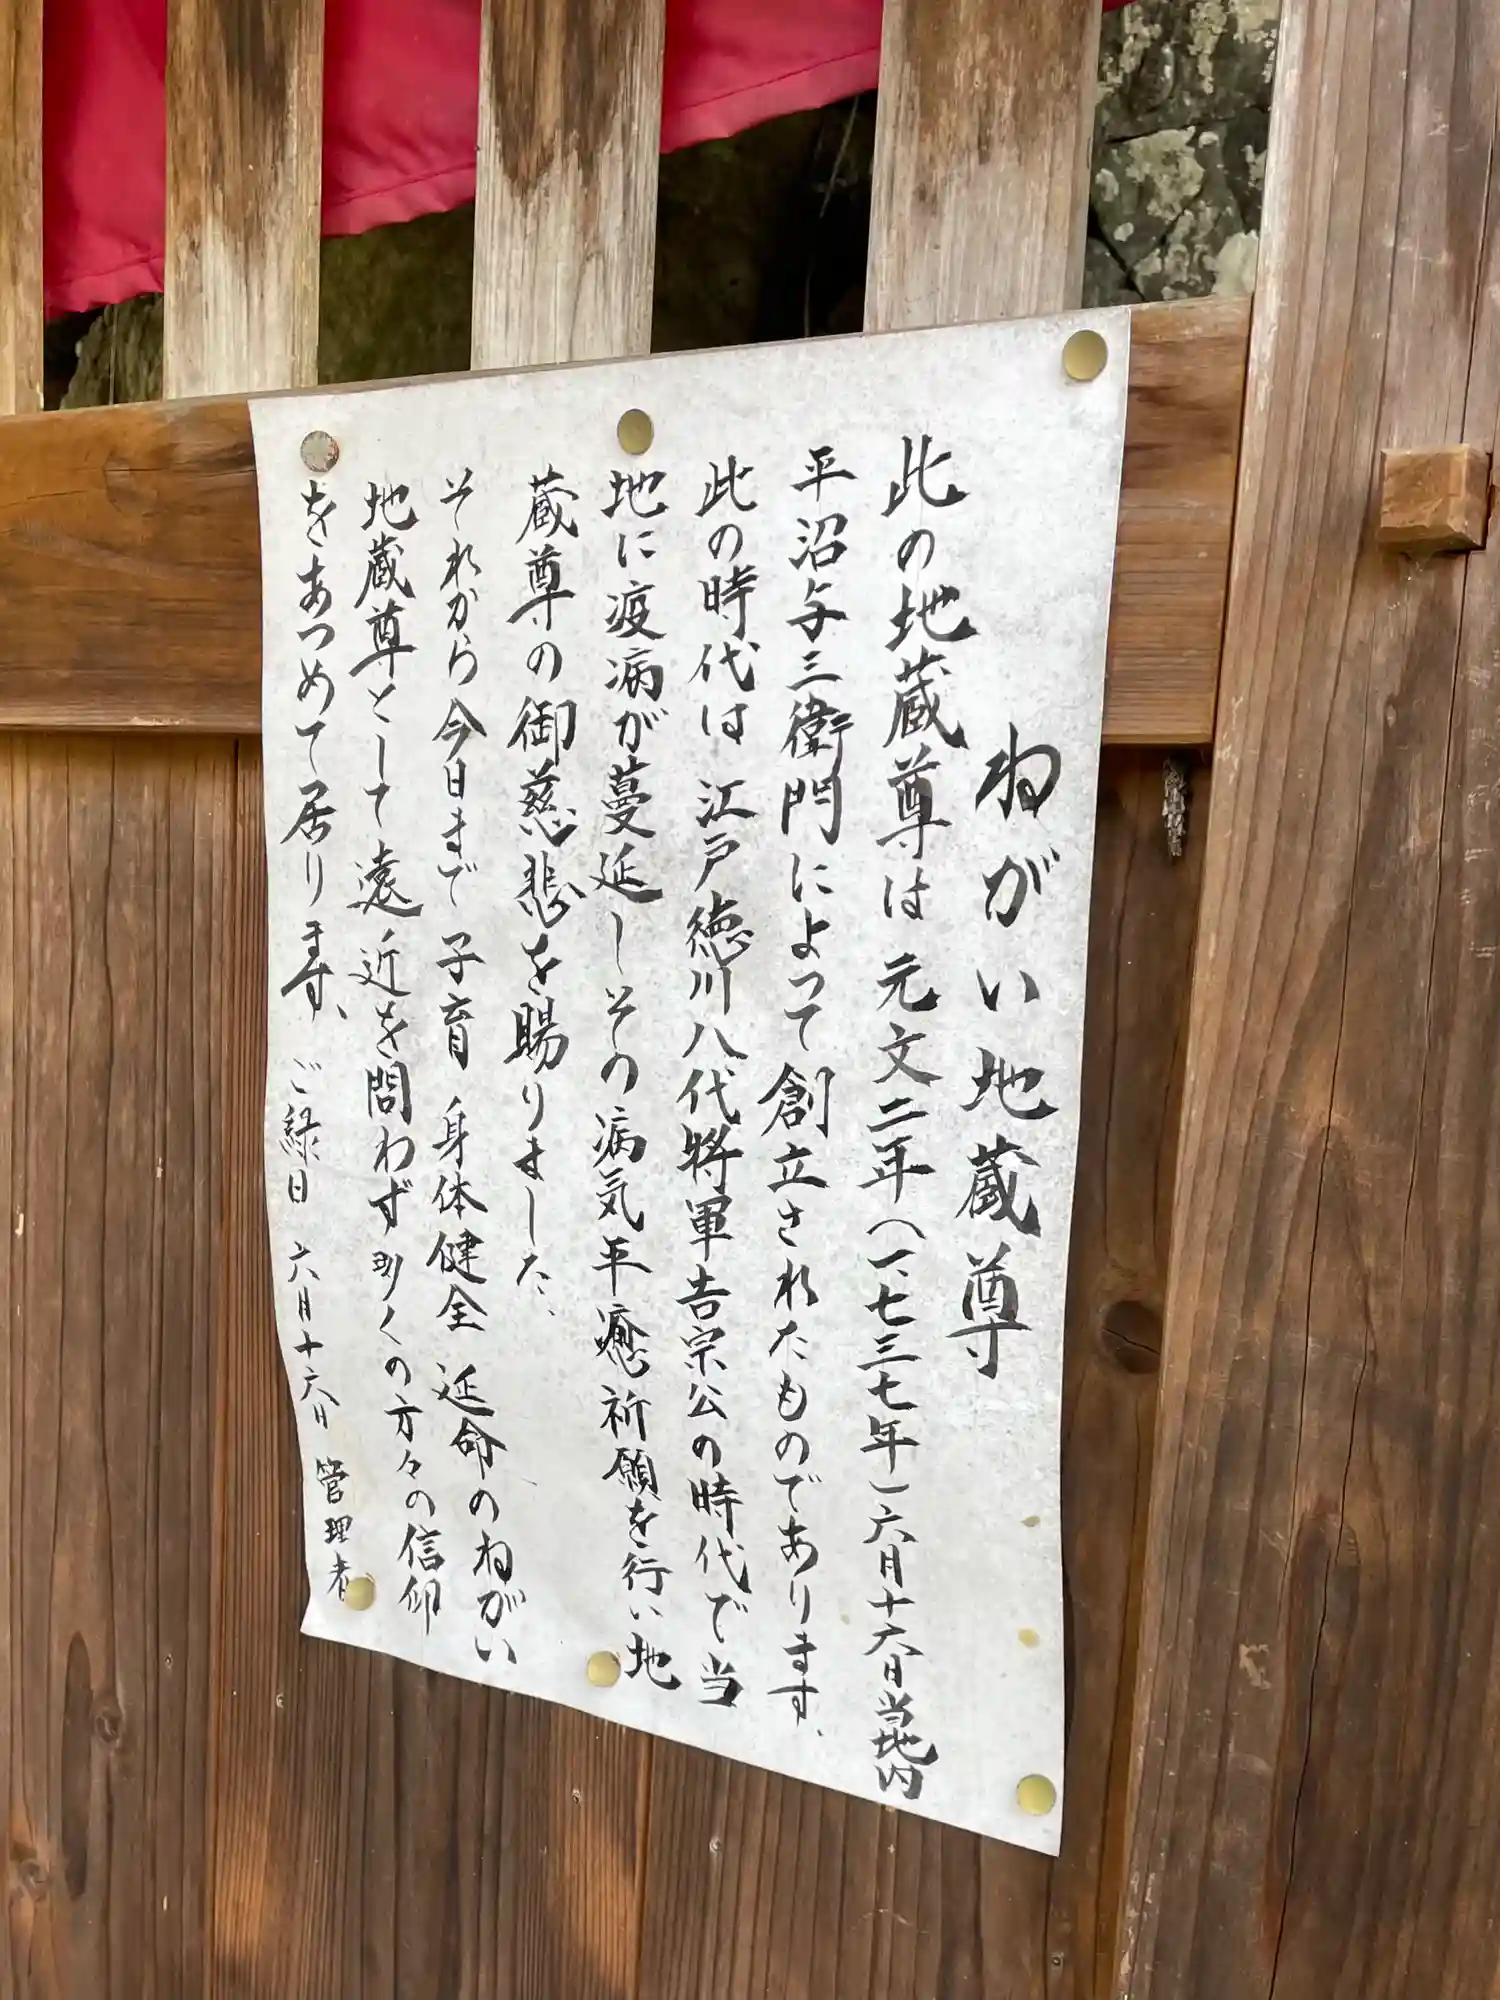 ねがい地蔵尊
此の地蔵尊は元文二年(一、七三七年)六月十六日当地内
平沼与三衛門によって創立されたものであります、
此の時代は江戸徳川八代将軍吉宗公の時代で当
地に疫病が蔓延しその病気平癒祈願を行い地
蔵尊の御慈悲を賜りました、
それから今日まで子育身体健全延命のねがい
地蔵尊として遠近を問わず多くの方々の信仰
をあつめて居ります、ご縁日六月十六日管理者